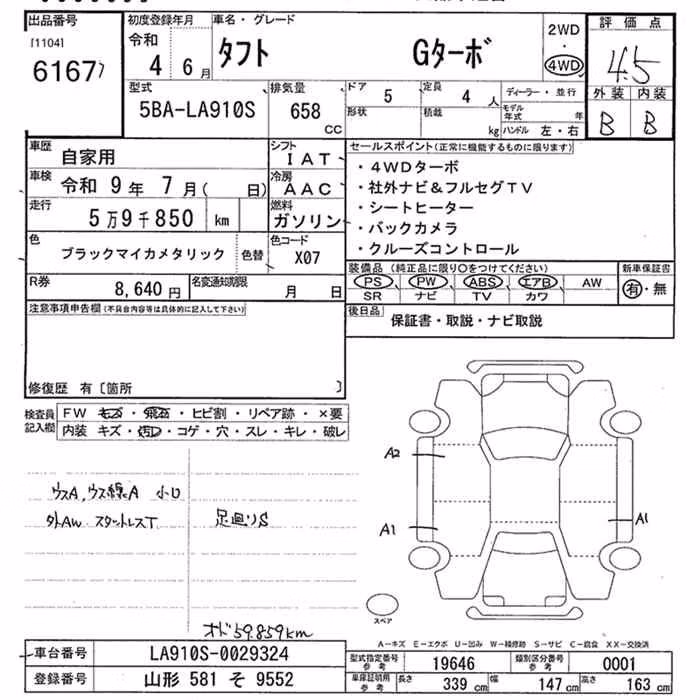 出品番号 初度登録年月 車名・グレード 2WD ・ 4WD 評価点
[1104] 令和
6167 4 6月 タフト Gターボ 4.5
型式 排気量 ドア 5 定員 4人 ディーラー・並行 外装 内装
5BA-LA910S 658 CC 形状 積載 kg モデル年式 年 B B
ハンドル 左・右
車歴 自家用 シフト IAT セールスポイント(正常に機能するものに限ります)
車検 令和 9年 7月( 日) 冷房 AAC ・4WDターボ
・社外ナビ&フルセグTV
走行 5万9千850 km 燃料 ガソリン ・シートヒーター
・バックカメラ
色 ブラックマイカメタリック 色替 色コード X07 ・クルーズコントロール
装備品(純正品に限り○をつけてください) 新車保証書
R券 8,640円 名変通知期限 月 日 PS PW ABS エアB AW 有・無
SR ナビ TV カワ
注意事項申告欄(不具合内容等は具体的に記入して下さい) 後日品 保証書・取説・ナビ取説
修復歴 有〔箇所 〕
検査員記入欄 FW キズ・飛石・ヒビ割・リペア跡・×要
内装 キズ・汚レ・コゲ・穴・スレ・キレ・破レ
A2
ウスA,ウス線A 小U
外AW スタットレスT 足廻りS A1 A1
スペア
オド59.859km
A−キズ E−エクボ U−凹み W−補修跡 S−サビ C−腐食 XX−交換済
車台番号 LA910S-0029324 型式指定番号 参考 19646 類別区分番号 参考 0001
登録番号 山形 581 そ 9552 車庫証明用 参考 長さ 339 cm 幅 147 cm 高さ 163 cm